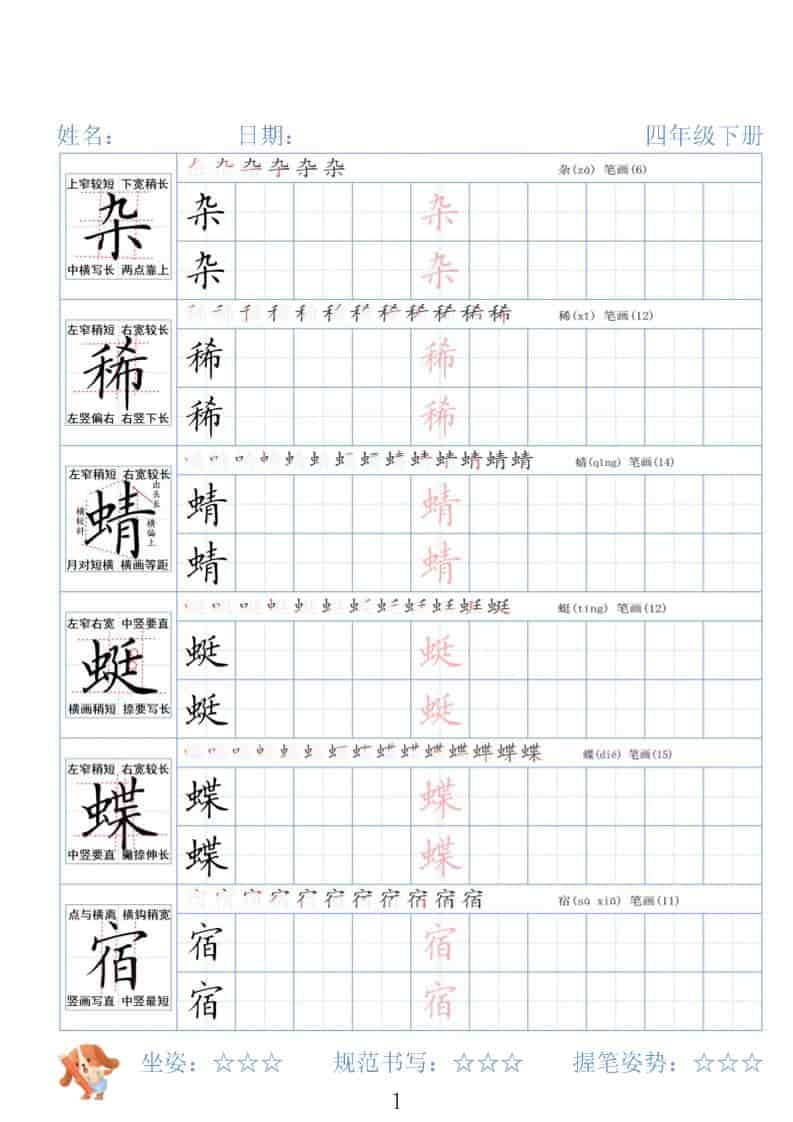 姓名： 日期： 四年级下册
杂(zá) 笔画(6)
上窄较短 下宽稍长
杂
中横写长 两点靠上
杂 杂
杂 杂
稀(xī) 笔画(12)
左窄稍短 右宽较长
稀
左竖偏右 右竖下长
稀 稀
稀 稀
蜻(qīng) 笔画(14)
左窄稍短 右宽较长
出头长
横较斜
横偏上
蜻
月对短横 横画等距
蜻 蜻
蜻 蜻
蜓(tíng) 笔画(12)
左窄右宽 中竖要直
蜓
横画稍短 捺要写长
蜓 蜓
蜓 蜓
蝶(dié) 笔画(15)
左窄稍短 右宽较长
蝶
中竖要直 撇捺伸长
蝶 蝶
蝶 蝶
宿(sù xiǔ) 笔画(11)
点与横离 横钩稍宽
宿
竖画写直 中竖最短
宿 宿
宿 宿
坐姿：☆☆☆ 规范书写：☆☆☆ 握笔姿势：☆☆☆
1